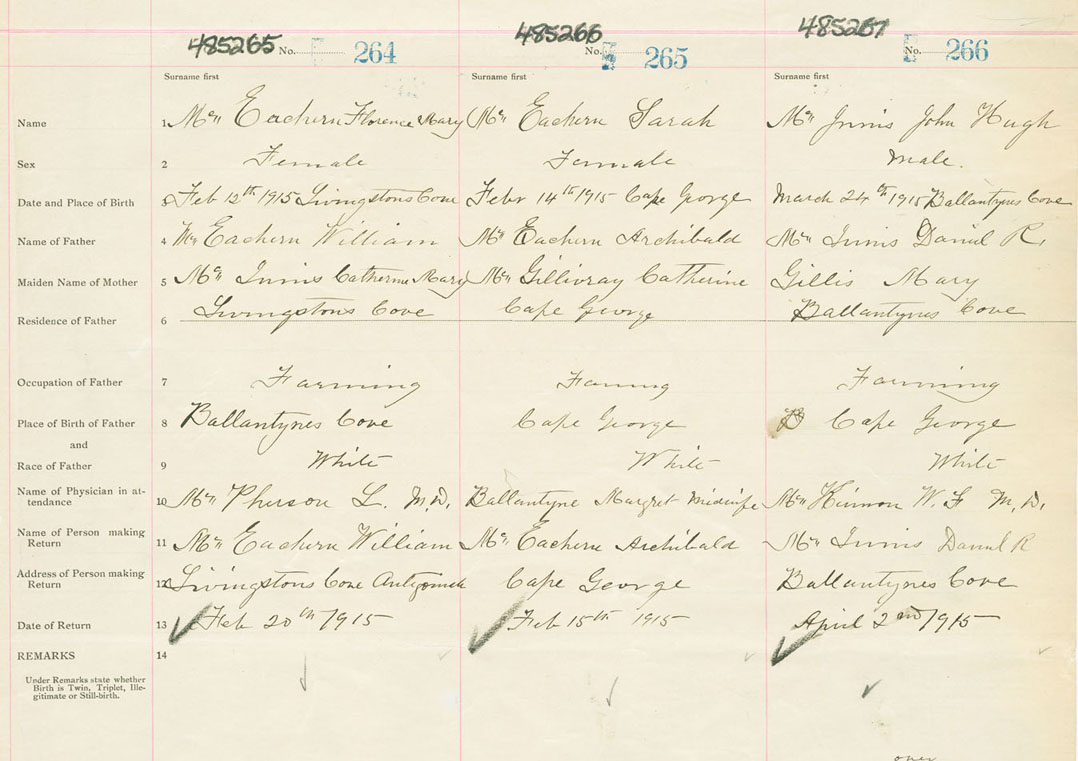 485265 No. 264 485266 No. 265 485267 No. 266
Surname first Surname first Surname first
Name 1 McEachern Florence Mary McEachern Sarah McInnis John Hugh
Sex 2 Female Female Male.
Date and Place of Birth 3 Feb 12th 1915 Livingstons Cove Febr 14th 1915 Cape George March 24th 1915 Ballantynes Cove
Name of Father 4 McEachern William McEachern Archibald McInnis Daniel R.
Maiden Name of Mother 5 McInnis Catherine Mary McGillivray Catherine Gillis Mary
Residence of Father 6 Livingstons Cove Cape George Ballantynes Cove
Occupation of Father 7 Farming Farming Farming
Place of Birth of Father 8 Ballantynes Cove Cape George Cape George
and
Race of Father 9 White White White
Name of Physician in at-
tendance 10 McPherson L. M.D. Ballantyne Margret Midwife McKinnon W. F M.D.
Name of Person making
Return 11 McEachern William McEachern Archibald McInnis Daniel R
Address of Person making
Return 12 Livingstons Cove Antigonish Cape George Ballantynes Cove
Date of Return 13 Feb 20th 1915 Feb 15th 1915 April 2nd 1915
REMARKS 14
Under Remarks state whether
Birth is Twin, Triplet, Ille-
gitimate or Still-birth.
over